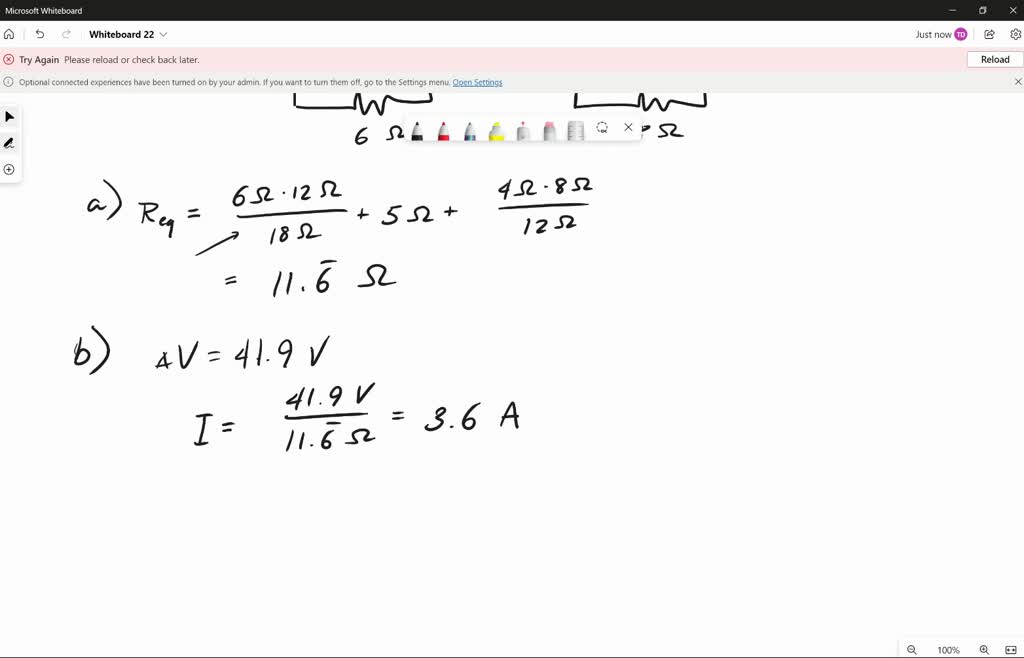 Microsoft Whiteboard
Whiteboard 22
Just now TD
Try Again Please reload or check back later.
Reload
Optional connected experiences have been turned on by your admin. If you want to turn them off, go to the Settings menu. Open Settings
6 Ω
Ω
a) Req = 6Ω·12Ω/18Ω + 5Ω + 4Ω·8Ω/12Ω
= 11.6̅ Ω
b) ΔV = 41.9 V
I = 41.9 V/11.6̅ Ω = 3.6 A
100%